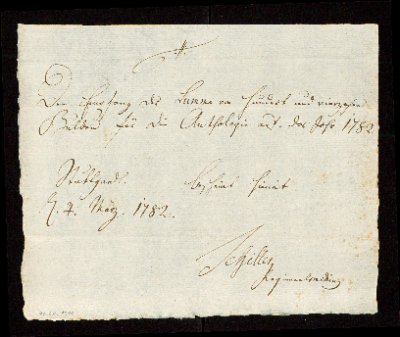 Den Empfang der Summe von hundert und vierzehn
Gulden für die Anthologie auf das Jahr 1782
Stuttgard. bescheint hiemit
d. 4. März. 1782.
Schiller
Regimentsmedikus